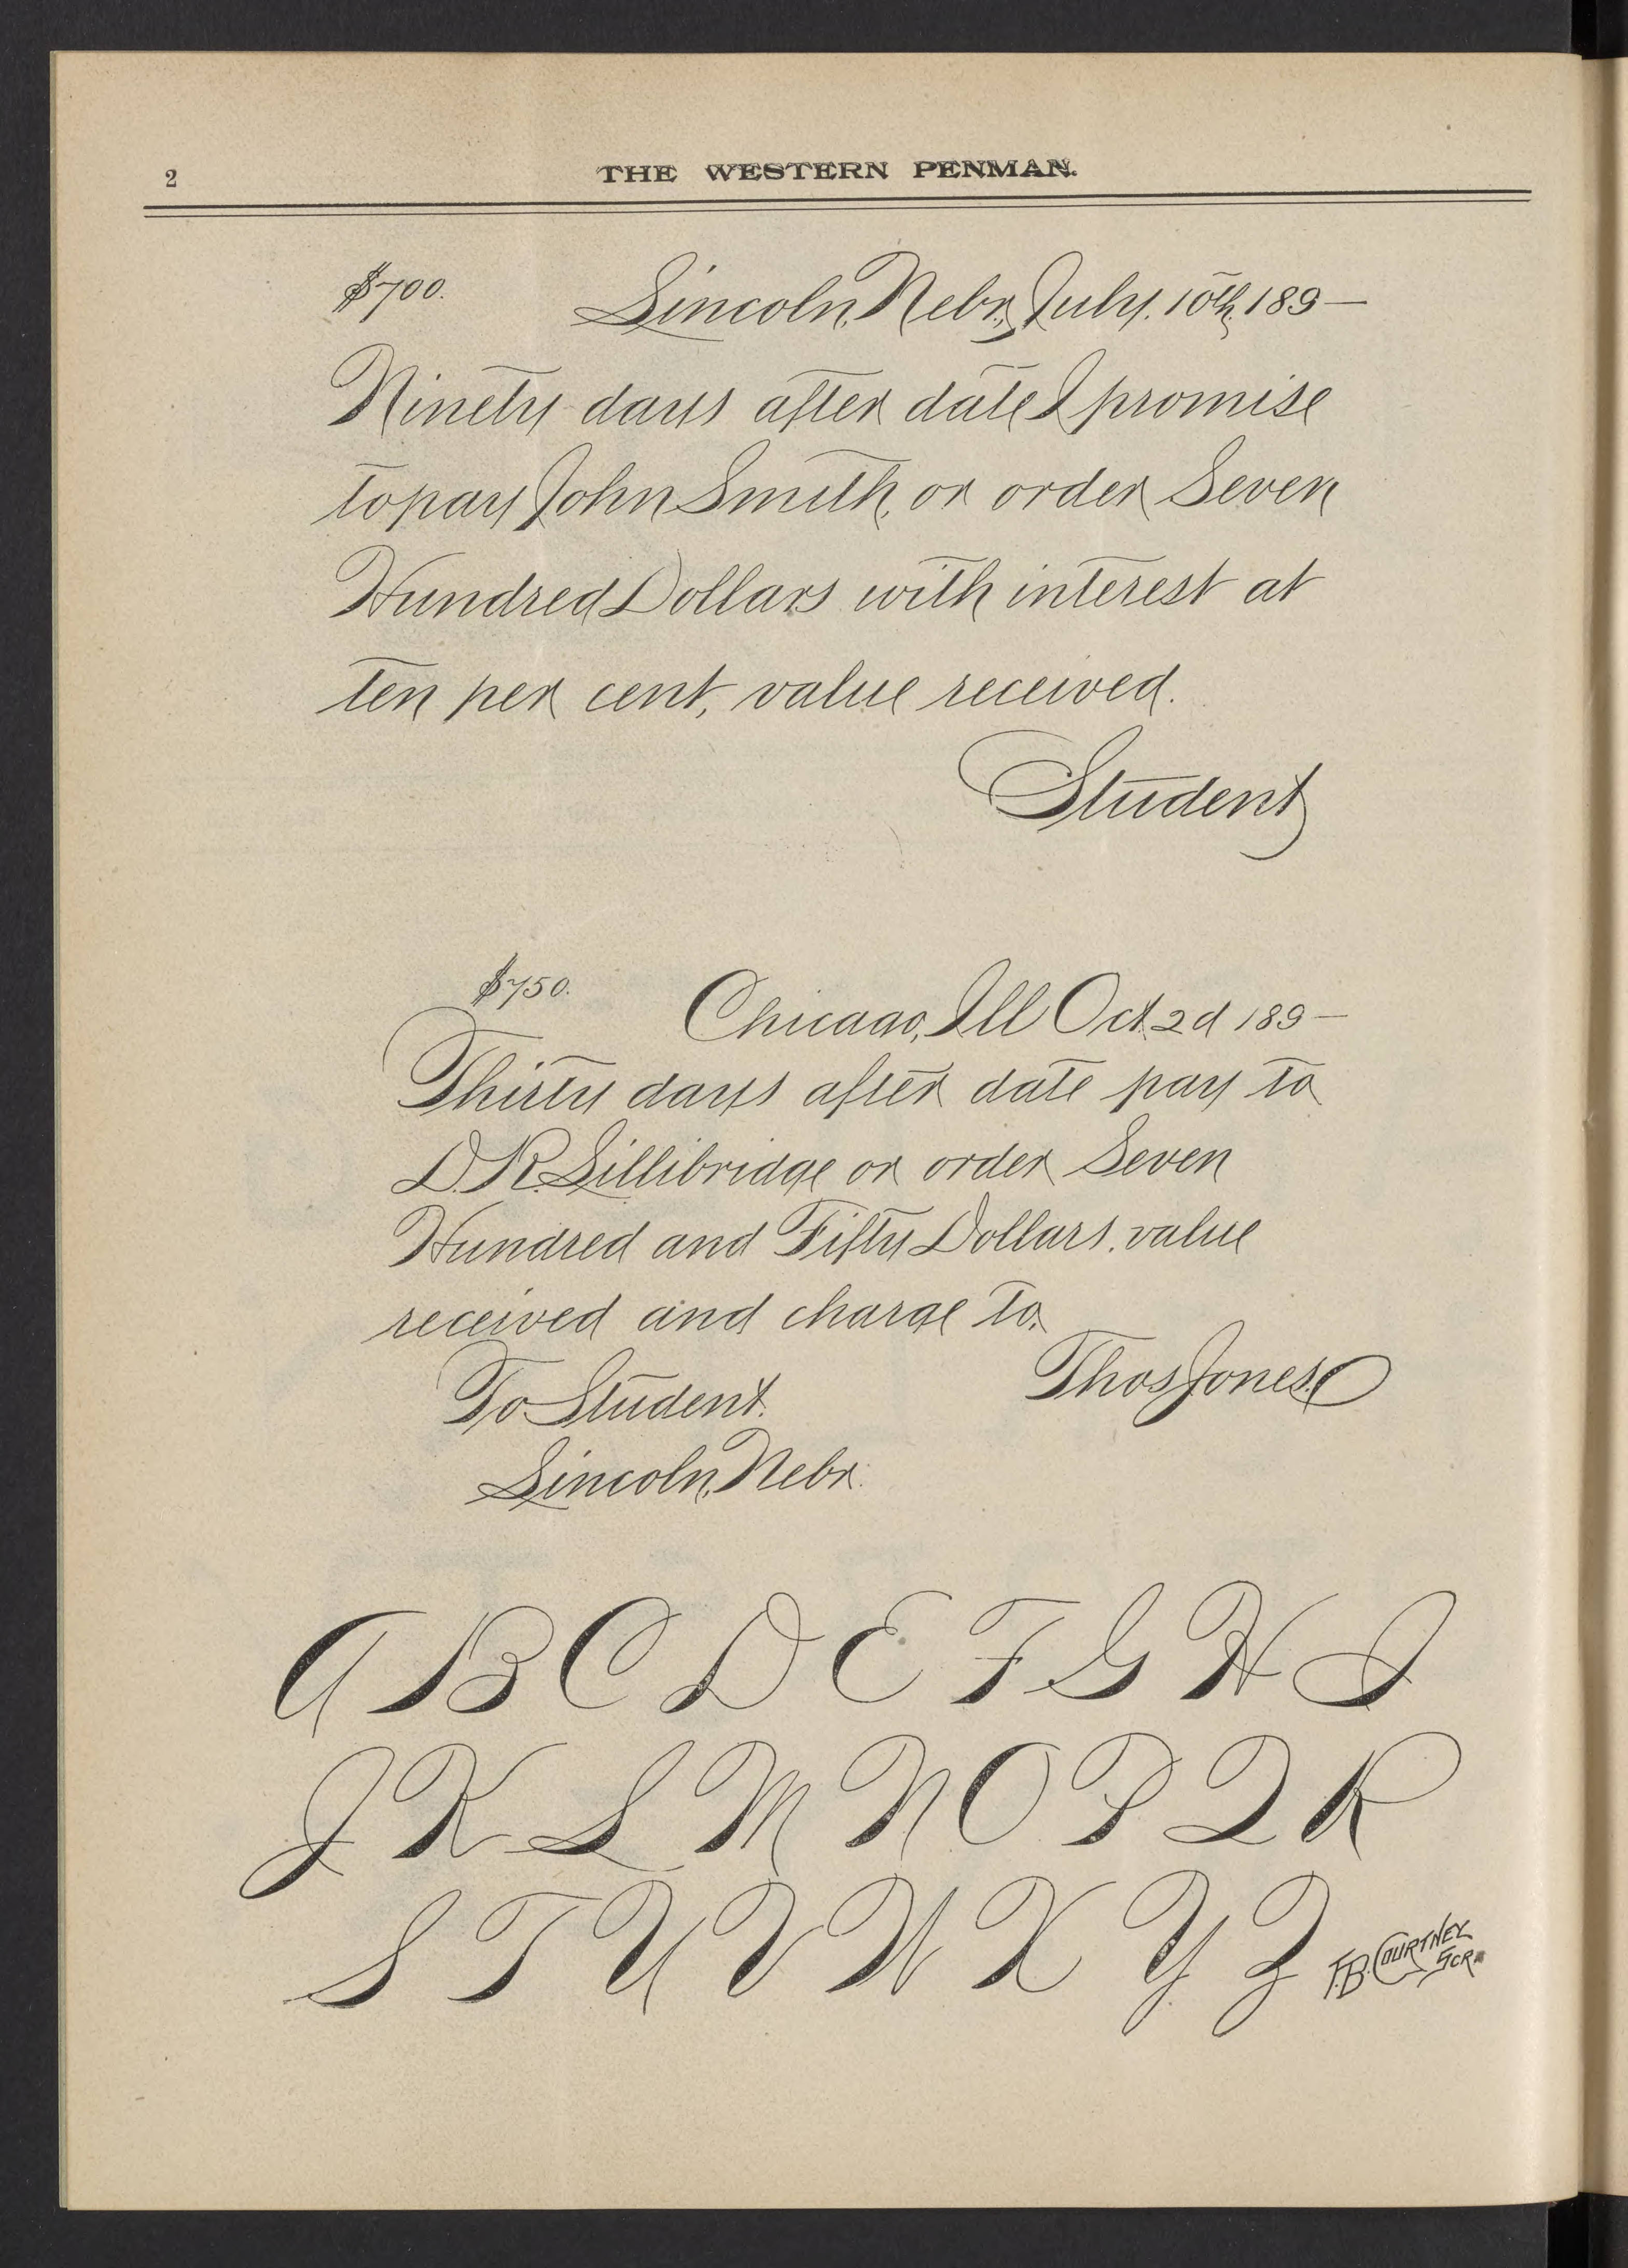 2
THE WESTERN PENMAN.
$700.
Lincoln, Nebr., July. 10th, 189—
Ninety days after date I promise
to pay John Smith, or order Seven
Hundred Dollars with interest at
ten per cent, value received.
Student
$750.
Chicago, Ill Oct. 2d 189—
Thirty days after date pay to
D. R. Lillibridge or order Seven
Hundred and Fifty Dollars, value
received and charge to,
Thos Jones.
To Student.
Lincoln, Nebr.
A B C D E F G H I
J K L M N O P Q R
S T U V W X Y Z
F.B. COURTNEY
SCR